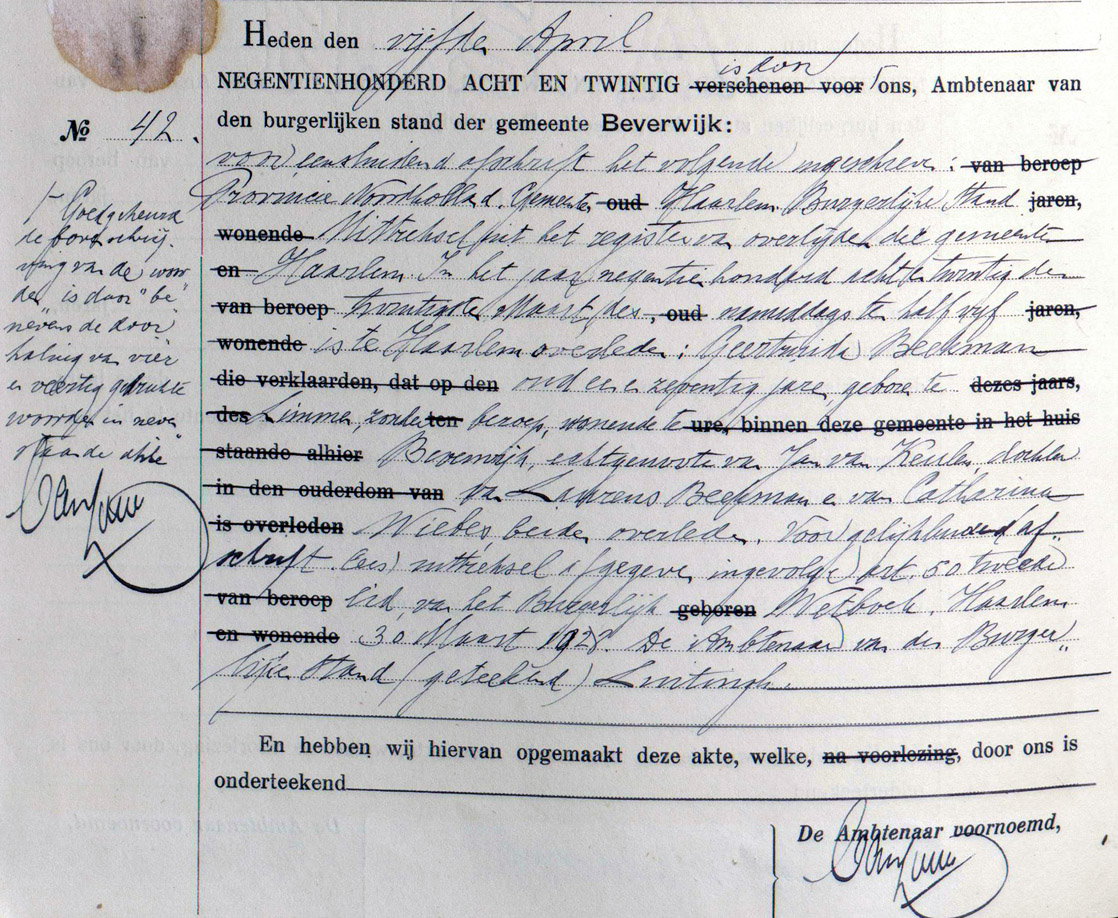 Heden den vijfden April
is door
NEGENTIENHONDERD ACHT EN TWINTIG verschenen voor ons, Ambtenaar van
den burgerlijken stand der gemeente Beverwijk:
No 42.
voor eensluidend afschrift het volgende ingeschreven: van beroep
Provincie Noordholland. Gemeente oud Haarlem Burgerlijke Stand jaren,
wonende Uittreksel uit het register van overlijden der gemeente
en Haarlem. In het jaar negentienhonderd acht en twintig den
van beroep Maart, des, oud namiddags te half vijf jaren,
wonende is te Haarlem overleden: Geertruida Beekman
die verklaarden, dat op den oud een en zeventig jaren geboren te dezes jaars,
des Limmen, zonder ten beroep, wonende te ure, binnen deze gemeente in het huis
staande alhier Beverwijk, echtgenoote van Jan van Keulen, dochter
in den ouderdom van van Laurens Beekman en van Catharina
is overleden Wiebes beiden overleden. Voor gelijkluidend af-
schrift (als) uittreksel afgegeven ingevolge art. 50 tweede
van beroep Lid, van het Burgerlijk geboren Wetboek. Haarlem
en wonende 30 Maart 1928. De Ambtenaar van den Burger„
lijken Stand (geteekend) Luitingh.
Goedgekeurd
de bovenschrij-
ving van de woor
den "is door" be„
nevens de door
haling van vier
en veertig gedrukte
woorden in neven
staande akte
En hebben wij hiervan opgemaakt deze akte, welke, na voorlezing, door ons is
onderteekend
De Ambtenaar voornoemd,